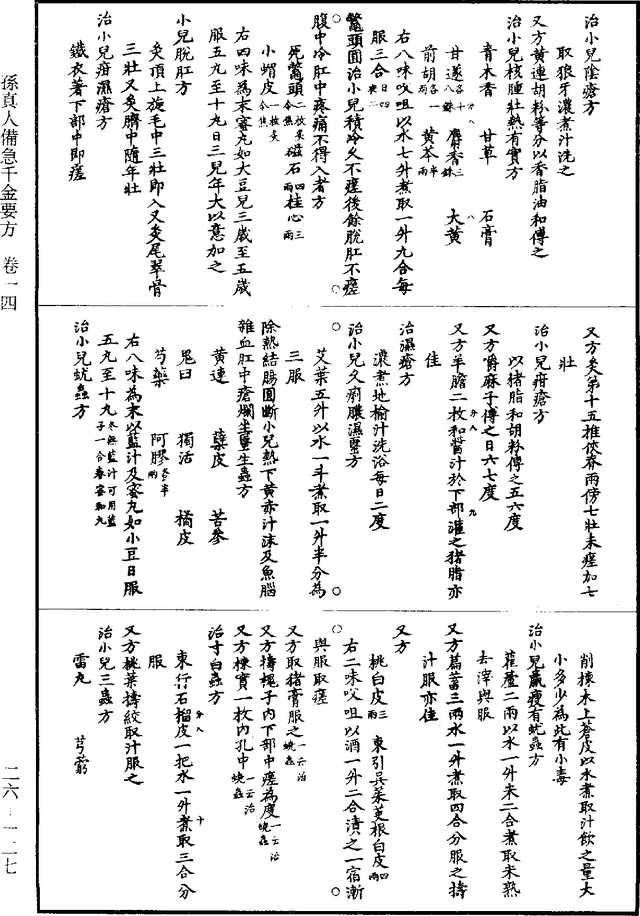 治小兒陰瘡方
取狼牙濃煮汁洗之
又方黃連胡粉等分以香脂油和傅之
治小兒核腫壯熱有實方
青木香 甘草 石膏
甘遂各十八銖 麝香三銖 大黃
前胡各一兩 黃芩半兩
右八味㕮咀以水七升煮取一升九合每
服三合日四夜二
鱉頭圓治小兒積冷久不瘥後餘脫肛不瘥
腹中冷肛中疼痛不得入者方
死鱉頭二枚炙令焦 磁石四兩 桂心三兩
小蝟皮一枚炙令焦
右四味為末蜜丸如大豆兒三歲至五歲
服五丸至十丸日三兒年大以意加之
小兒脫肛方
灸頂上旋毛中三壯即入又灸尾翠骨
三壯又灸臍中隨年壯
治小兒疳濕瘡方
鐵衣著下部中即瘥
又方灸第十五推俠脊兩傍七壯未瘥加七
壯
治小兒疳瘡方
以猪脂和胡粉傅之五六度
又方嚼麻子傅之日六七度
又方羊膽二枚和醬汁於下部灌之猪脂亦
佳
治濕瘡方
濃煮地榆汁洗浴每日二度
治小兒久痢膿濕䘌方
艾葉五升以水一斗煮取一升半分為
三服
除熱結腸圓斷小兒熱下黃赤汁沫及魚腦
雜血肛中瘡爛坐䘌生蟲方
黃連 蘗皮 苦參
鬼臼 獨活 橘皮
芍藥 阿膠各半兩
右八味為末以藍汁及蜜丸如小豆日服
五丸至十丸冬無藍汁可用藍子一合舂蜜和丸
治小兒蚘蟲方
削楝木上蒼皮以水煮取汁飲之量大
小多少為此有小毒
治小兒羸瘦有蚘蟲方
雚蘆二兩以水一升米二合煮取米熟
去滓與服
又方萹蓄三兩水一升煮取四合分服之擣
汁服亦佳
又方
桃白皮三兩 東引吳茱萸根白皮四兩
右二味㕮咀以酒一升二合漬之一宿漸
與服取瘥
又方取猪膏服之一云治蟯蟲
又方擣槐子內下部中瘥為度一云治蟯蟲
又方楝實一枚內孔中一云治蟯蟲
治寸白蟲方
東行石榴皮一把水一升煮取三合分
服
又方桃葉擣絞取汁服之
治小兒三蟲方
雷丸 芎藭
孫真人備急千金要方 卷一四
二六-一二七